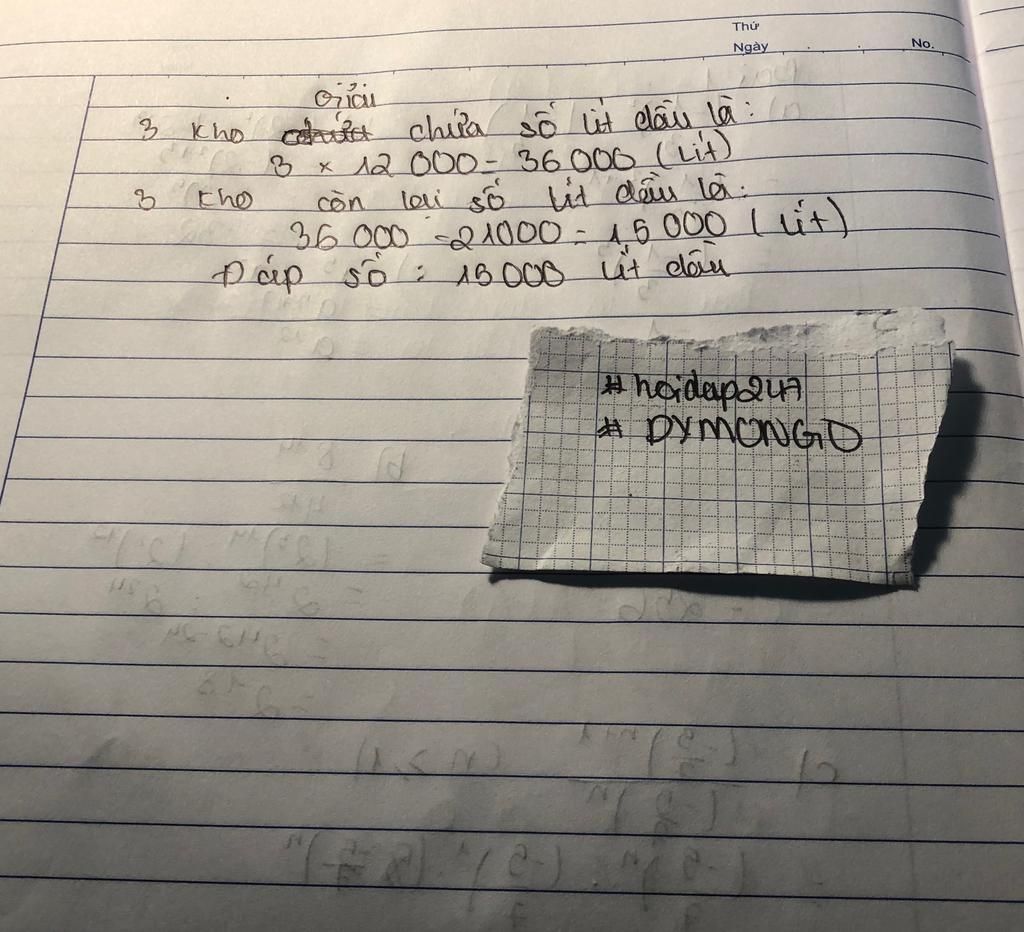 Thứ
Ngày No.
Giải
3 kho chứa số lít dầu là:
3 × 12 000 = 36 000 (lít)
3 kho còn lại số lít dầu là:
36 000 - 21000 = 15 000 (lít)
Đáp số : 15 000 lít dầu
#hoidap247
# DYMONGO
b)
c) (n ≥ 1)